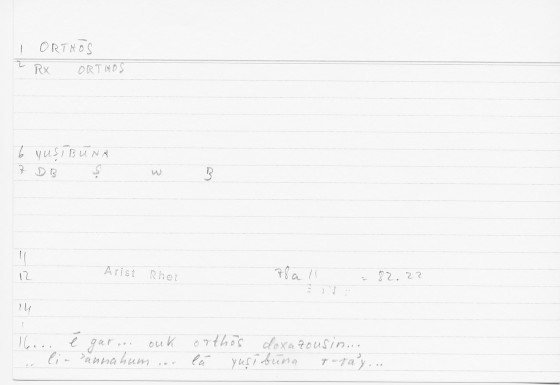 1 ORTHŌS
2 Rx ORTHOS
6 YUṢĪBŪNA
7 DB Ṣ w B
11
12 Arist Rhet 78a 11 = 82.22
14
16 ... ē gar... ouk orthōs doxazousin...
.. li-ʾannahum ... lā yuṣībūna r-raʾy...